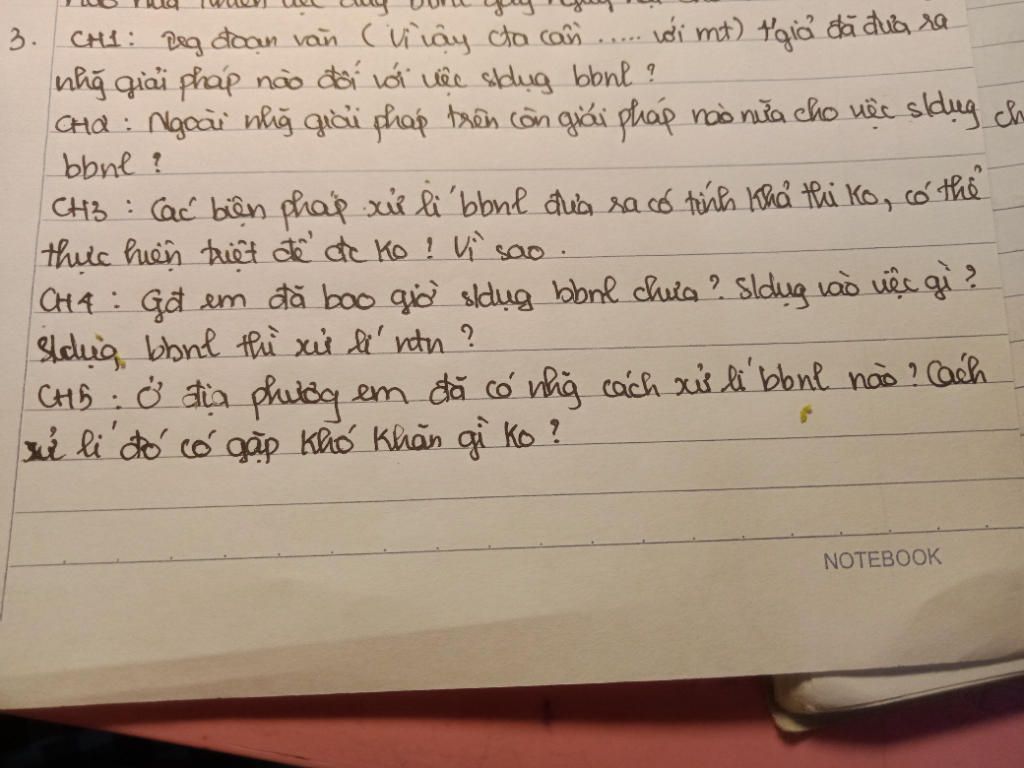 3. CH1: Trg đoạn văn (Vì vậy cta cần ..... với mt) t'giả đã đưa ra
nhg̃ giải pháp nào đối với việc s/dụg bbnl?
CH2: Ngoài nhg̃ giải pháp trên còn giải pháp nào nữa cho việc s/dụg ch
bbnl?
CH3: Các biện pháp xử lí bbnl đưa ra có tính khả thi ko, có thể
thực hiện triệt để đc ko! Vì sao.
CH4: Gđ em đã bao giờ s/dụg bbnl chưa? S/dụg vào việc gì?
S/dụg bbnl thì xử lí ntn?
CH5: Ở địa phương em đã có nhg̃ cách xử lí bbnl nào? Cách
xử lí đó có gặp khó khăn gì ko?
NOTEBOOK